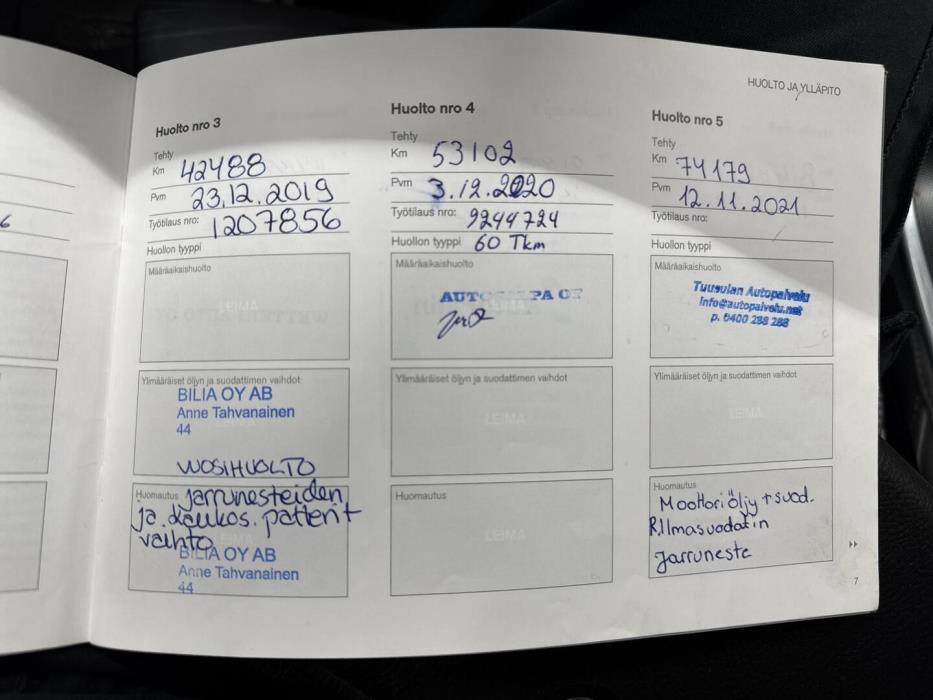 HUOLTO JA YLLÄPITO
Huolto nro 3
Tehty
Km 42488
Pvm 23.12.2019
Työtilaus nro: 1207856
Huollon tyyppi
Määräaikaishuolto
LEIMA
Ylimääräiset öljyn ja suodattimen vaihdot
BILIA OY AB
Anne Tahvanainen
44
VUOSIHUOLTO
Huomautus Jarrunesteiden
ja kaukos. patterit
vaihto
BILIA OY AB
Anne Tahvanainen
44
Huolto nro 4
Tehty
Km 53102
Pvm 3.12.2020
Työtilaus nro: 9244724
Huollon tyyppi 60 Tkm
Määräaikaishuolto
PA OY
Ylimääräiset öljyn ja suodattimen vaihdot
LEIMA
Huomautus
LEIMA
Huolto nro 5
Tehty
Km 74179
Pvm 12.11.2021
Työtilaus nro:
Huollon tyyppi
Määräaikaishuolto
Tuusulan Autopalvelu
info@autopalvelu.net
p. 0400 288 288
Ylimääräiset öljyn ja suodattimen vaihdot
LEIMA
Huomautus
Moottoriöljy + suod.
R.Ilmasuodatin
Jarruneste
7